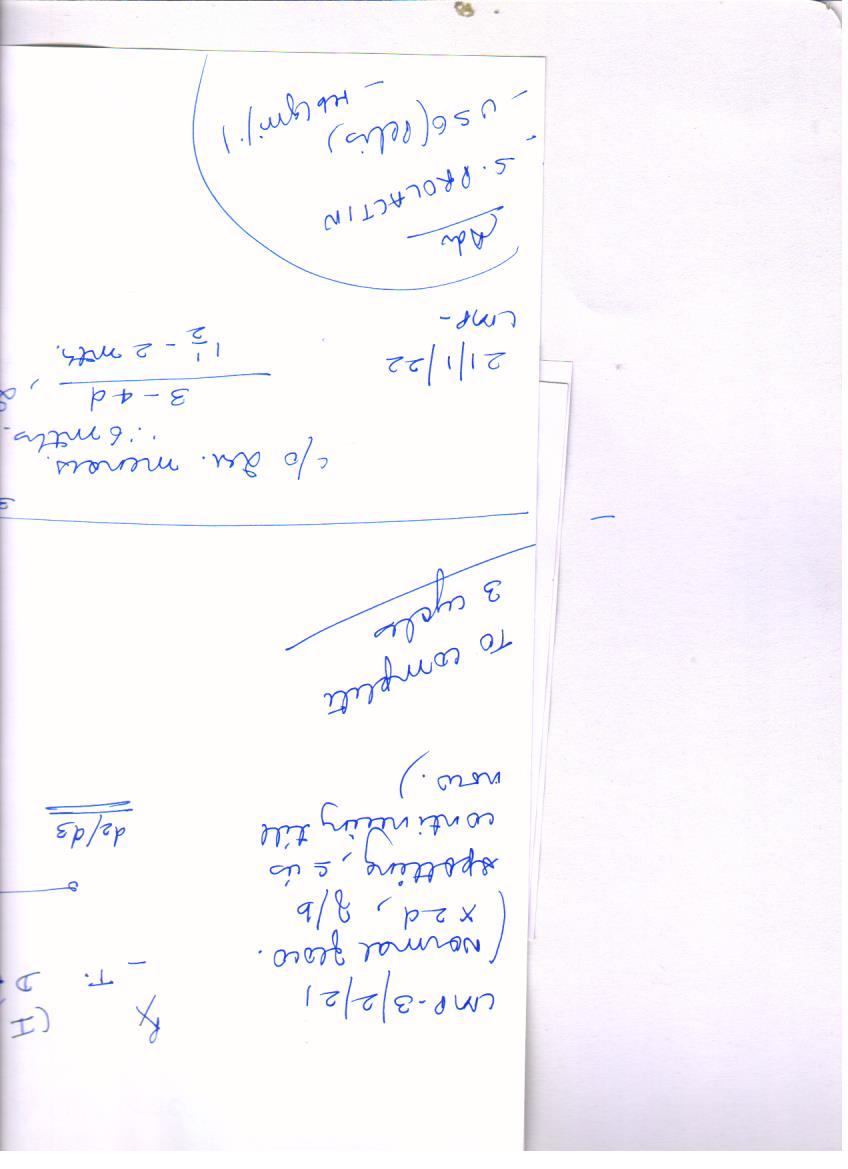 LMP - 3/2/21
(Normal flow.
x 2d, f/b
spotting, c is
continuing till
now.)
Rx (I
- T. D
d2/d3
To complete
3 cycles
c/o irr. menses
∵ 6 mths.
3 - 4d
1½ - 2 mths.
21/1/22
LMP -
Adv
- S. PROLACTIN
- USG (Pelvis)
- Hb (gm%)